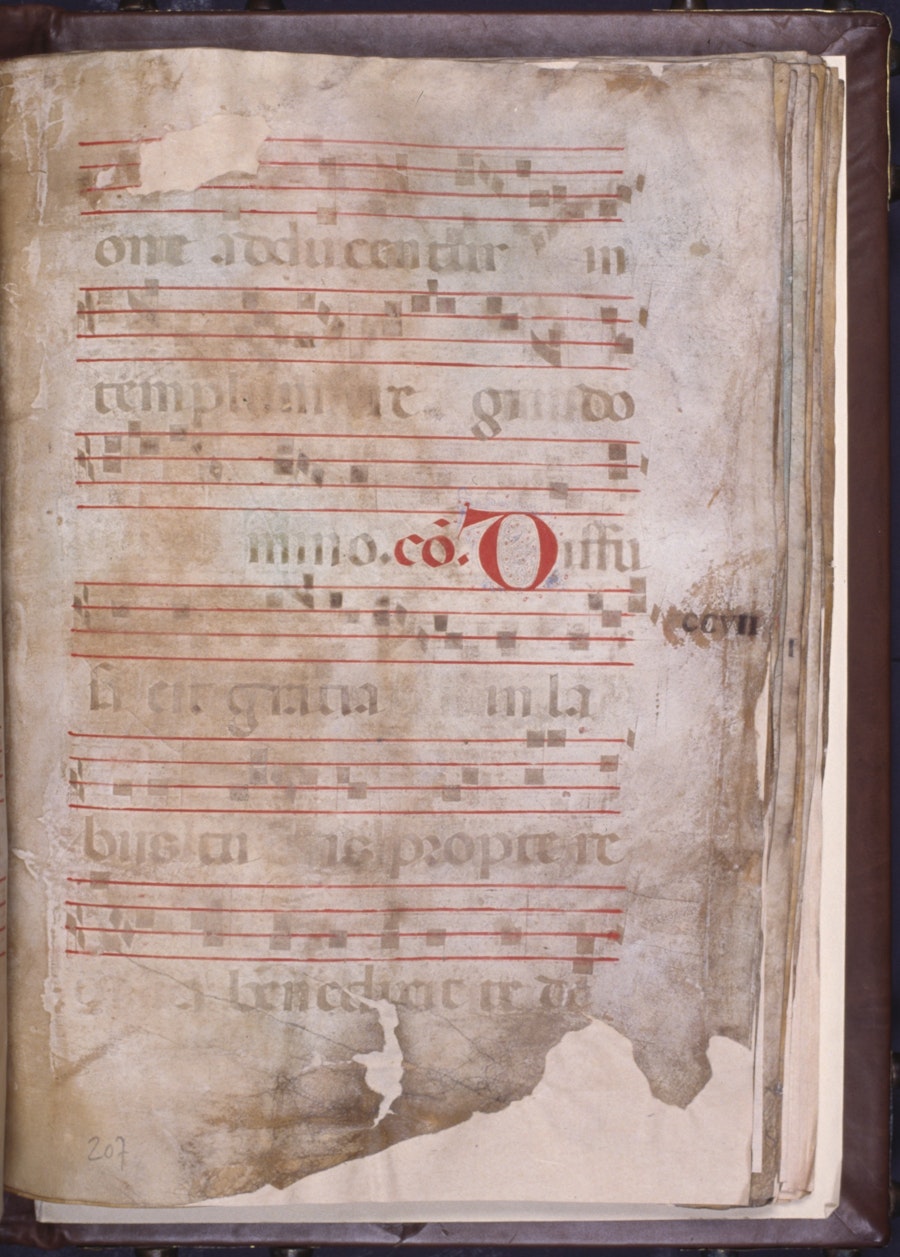 one adducentur in
templum re gi do
mino. cõ. Diffu
sa est gratia in la
bijs tu is propte re
a benedixit te de
ccvii
207